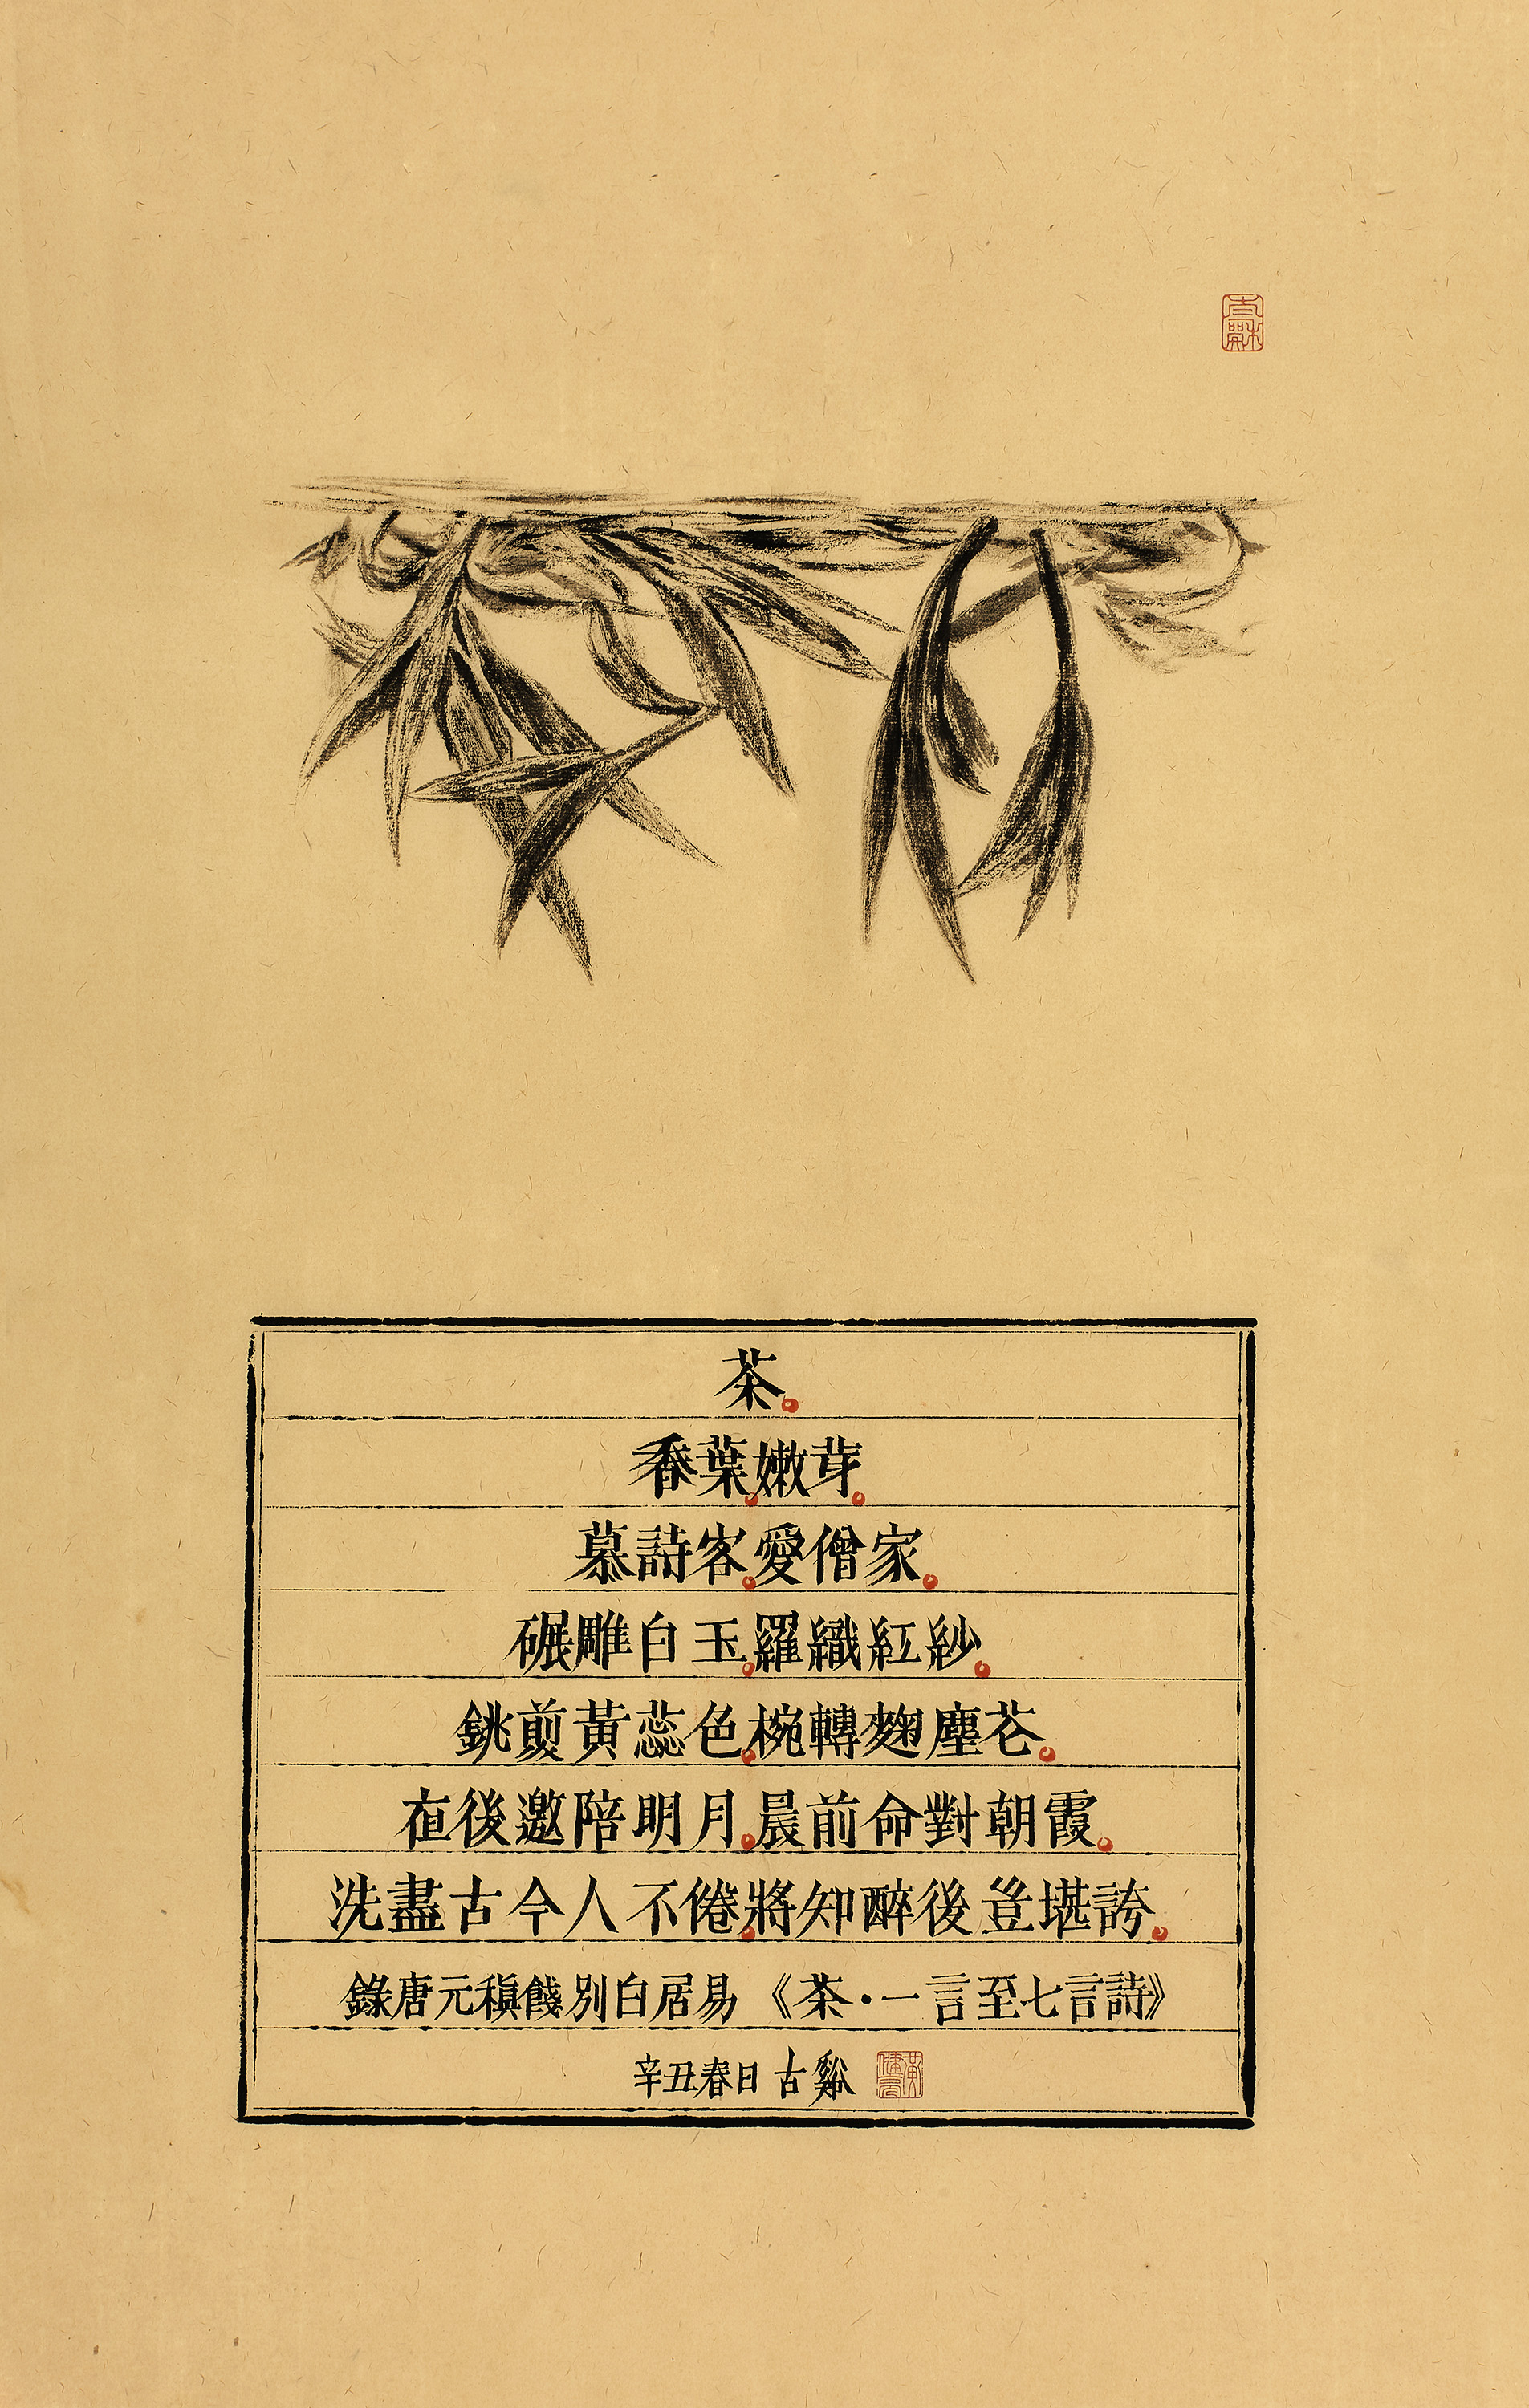 茶。
香葉。嫩芽。
慕詩客。愛僧家。
碾雕白玉。羅織紅紗。
銚煎黃蕊色。椀轉麴塵花。
夜後邀陪明月。晨前命對朝霞。
洗盡古今人不倦。將知醉後豈堪誇。
錄唐元稹餞別白居易《茶·一言至七言詩》
辛丑春日 古谿